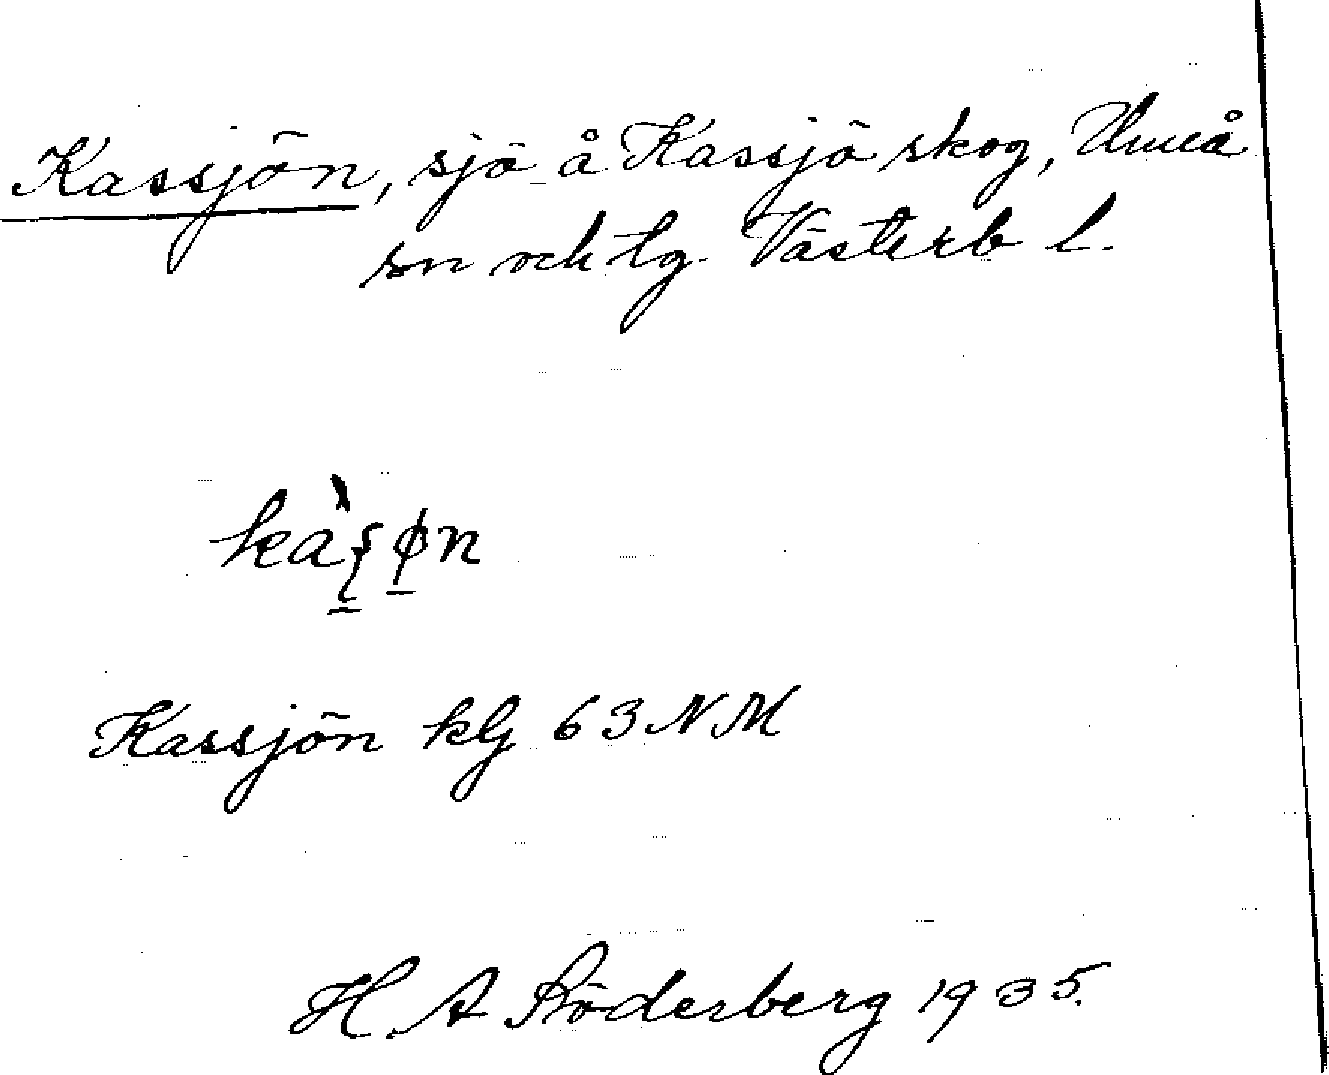 Kassjön, sjö å Kassjö skog, Umeå
sn och tg. Västerb l.
Kassjön klj 63 NM
H. A Söderberg 1935.